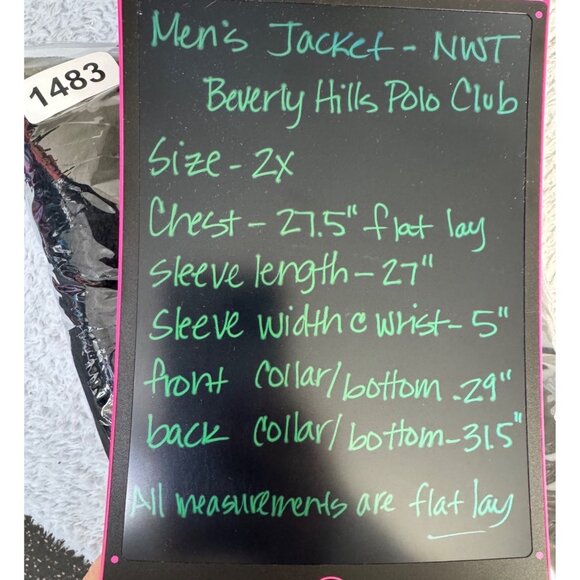 1483
Men's Jacket - NWT
Beverly Hills Polo Club
Size - 2X
Chest - 27.5" flat lay
Sleeve length - 27"
Sleeve width @ wrist - 5"
front collar/bottom - 29"
back collar/bottom - 31.5"
All measurements are flat lay